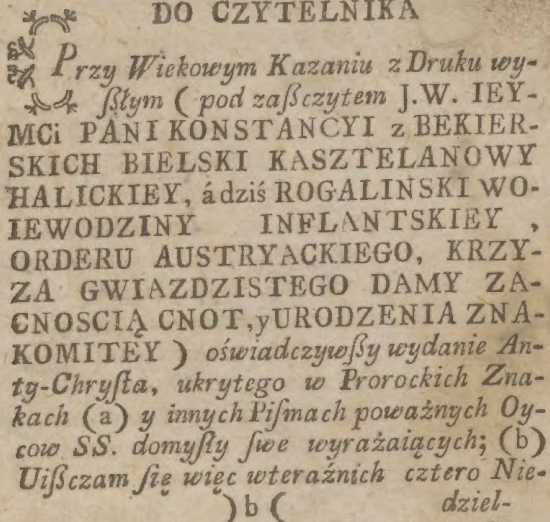 DO CZYTELNIKA
Przy Wiekowym Kazaniu z Druku wy-
ſzłym ( pod zaſzczytem J.W. IEY-
MCi PANI KONSTANCYI z BEKIER-
SKICH BIELSKI KASZTELANOWY
HALICKIEY, á dziś ROGALINSKI WO-
IEWODZINY INFLANTSKIEY ,
ORDERU AUSTRYACKIEGO, KRZY-
ZA GWIAZDZISTEGO DAMY ZA-
CNOSCIĄ CNOT, y URODZENIA ZNA-
KOMITEY ) oświadczywſzy wydanie An-
ty-Chryſta, ukrytego w Prorockich Zna-
kach (a) y innych Piſmach poważnych Oy-
cow SS. domyſły ſwe wyrażaiących; (b)
Uiſzczam ſię więc wteraźnich cztero Nie-
)b( dziel-